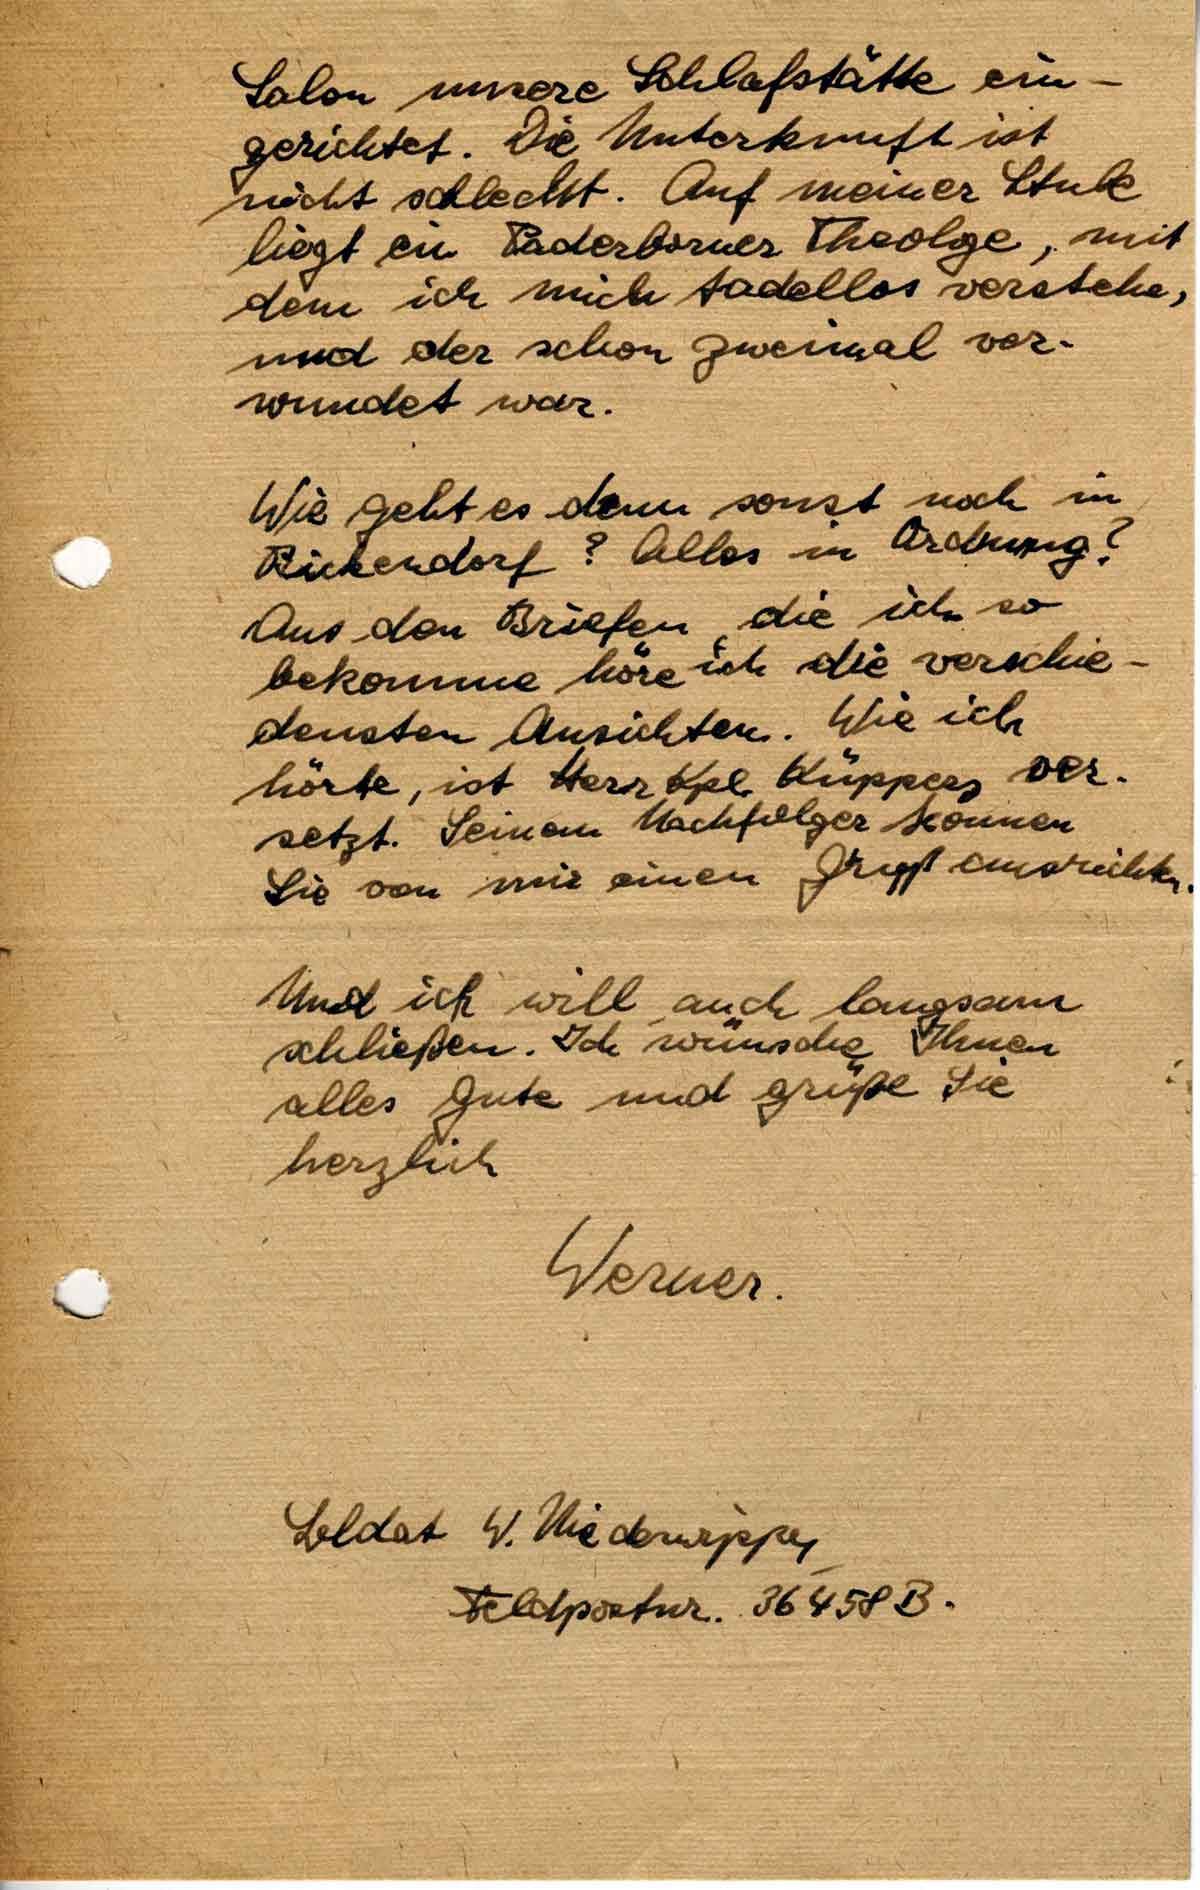 Salon unsere Schlafstätte ein-
gerichtet. Die Unterkunft ist
nicht schlecht. Auf meiner Stube
liegt ein Paderborner Theolge, mit
dem ich mich tadellos verstehe,
und der schon zweimal ver-
wundet war.
Wie geht es denn sonst noch in
Bickendorf? Alles in Ordnung?
Aus den Briefen, die ich so
bekomme höre ich die verschie-
densten Ansichten. Wie ich
hörte, ist Herr Kpl. Küppers ver-
setzt. Seinem Nachfolger können
Sie von mir einen Gruß ausrichten.
Und ich will auch langsam
schließen. Ich wünsche Ihnen
alles Gute und grüße Sie
herzlich
Werner.
Soldat W. Niederwipper
Feldpostnr. 36458 B.